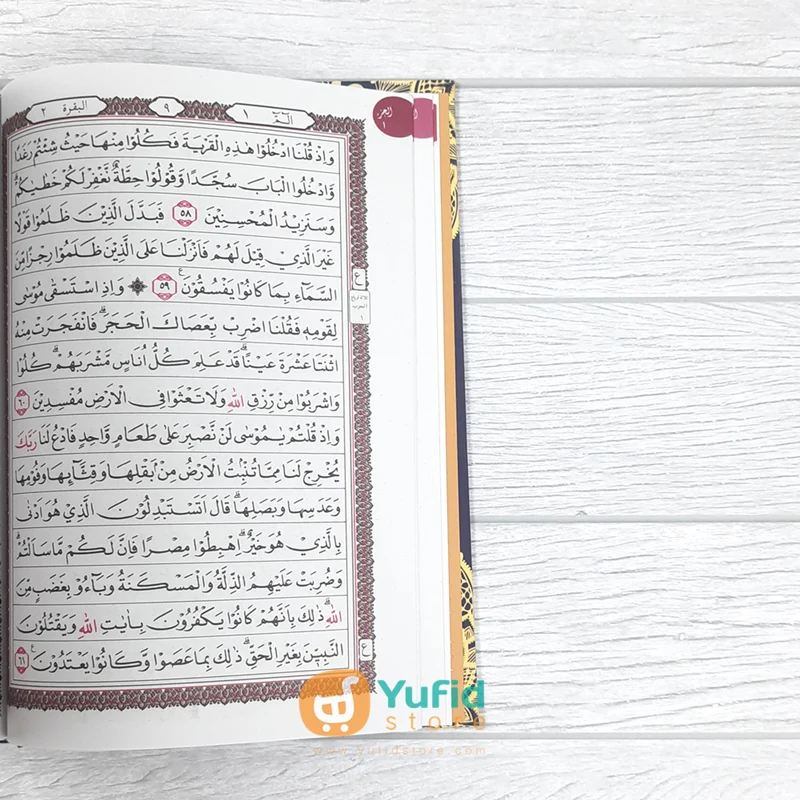 الٓمّٓ ١
٩
البقرة ٢
الجزء
١
وَاِذْ قُلْنَا ادْخُلُوْا هٰذِهِ الْقَرْيَةَ فَكُلُوْا مِنْهَا حَيْثُ شِئْتُمْ رَغَدًا
وَّادْخُلُوا الْبَابَ سُجَّدًا وَّقُوْلُوْا حِطَّةٌ نَّغْفِرْ لَكُمْ خَطٰيٰكُمْ ۗ
وَسَنَزِيْدُ الْمُحْسِنِيْنَ ٥٨ فَبَدَّلَ الَّذِيْنَ ظَلَمُوْا قَوْلًا
غَيْرَ الَّذِيْ قِيْلَ لَهُمْ فَاَنْزَلْنَا عَلَى الَّذِيْنَ ظَلَمُوْا رِجْزًا مِّنَ
السَّمَاۤءِ بِمَا كَانُوْا يَفْسُقُوْنَ ࣖ ٥٩ ۞ وَاِذِ اسْتَسْقٰى مُوْسٰى
لِقَوْمِهٖ فَقُلْنَا اضْرِبْ بِّعَصَاكَ الْحَجَرَۗ فَانْفَجَرَتْ مِنْهُ
اثْنَتَا عَشْرَةَ عَيْنًاۗ قَدْ عَلِمَ كُلُّ اُنَاسٍ مَّشْرَبَهُمْۗ كُلُوْا
وَاشْرَبُوْا مِنْ رِّزْقِ اللّٰهِ وَلَا تَعْثَوْا فِى الْاَرْضِ مُفْسِدِيْنَ ٦٠
وَاِذْ قُلْتُمْ يٰمُوْسٰى لَنْ نَّصْبِرَ عَلٰى طَعَامٍ وَّاحِدٍ فَادْعُ لَنَا رَبَّكَ
يُخْرِجْ لَنَا مِمَّا تُنْۢبِتُ الْاَرْضُ مِنْۢ بَقْلِهَا وَقِثَّاۤىِٕهَا وَفُوْمِهَا
وَعَدَسِهَا وَبَصَلِهَاۗ قَالَ اَتَسْتَبْدِلُوْنَ الَّذِيْ هُوَ اَدْنٰى
بِالَّذِيْ هُوَ خَيْرٌۗ اِهْبِطُوْا مِصْرًا فَاِنَّ لَكُمْ مَّا سَاَلْتُمْۗ
وَضُرِبَتْ عَلَيْهِمُ الذِّلَّةُ وَالْمَسْكَنَةُ وَبَاۤءُوْ بِغَضَبٍ مِّنَ
اللّٰهِۗ ذٰلِكَ بِاَنَّهُمْ كَانُوْا يَكْفُرُوْنَ بِاٰيٰتِ اللّٰهِ وَيَقْتُلُوْنَ
النَّبِيّٖنَ بِغَيْرِ الْحَقِّۗ ذٰلِكَ بِمَا عَصَوْا وَّكَانُوْا يَعْتَدُوْنَ ࣖ ٦١
ع
ثلاثة ارباع
الحزب
١
ع
Yufid
store
www.yufidstore.com